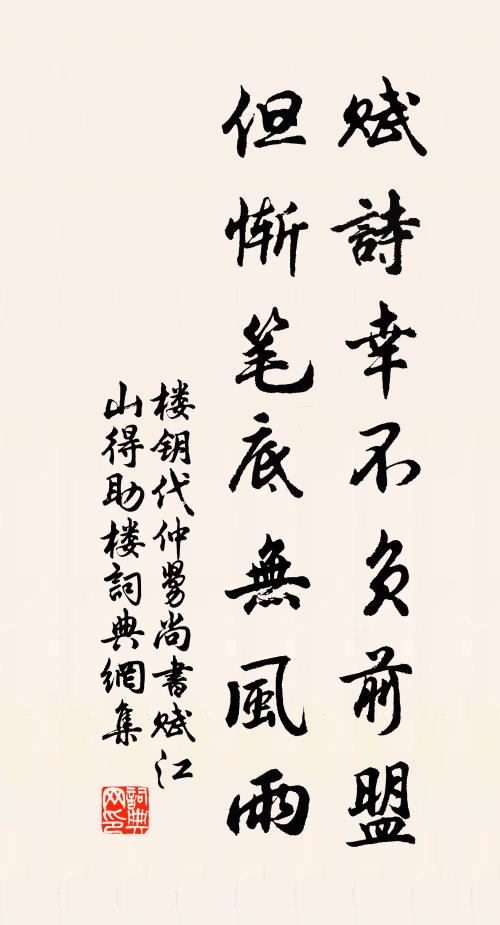 赋詩幸不负前盟
但惭笔底無風雨
楼钥代仲舅尚書赋江
山得助楼詞典網集
詞典
网印